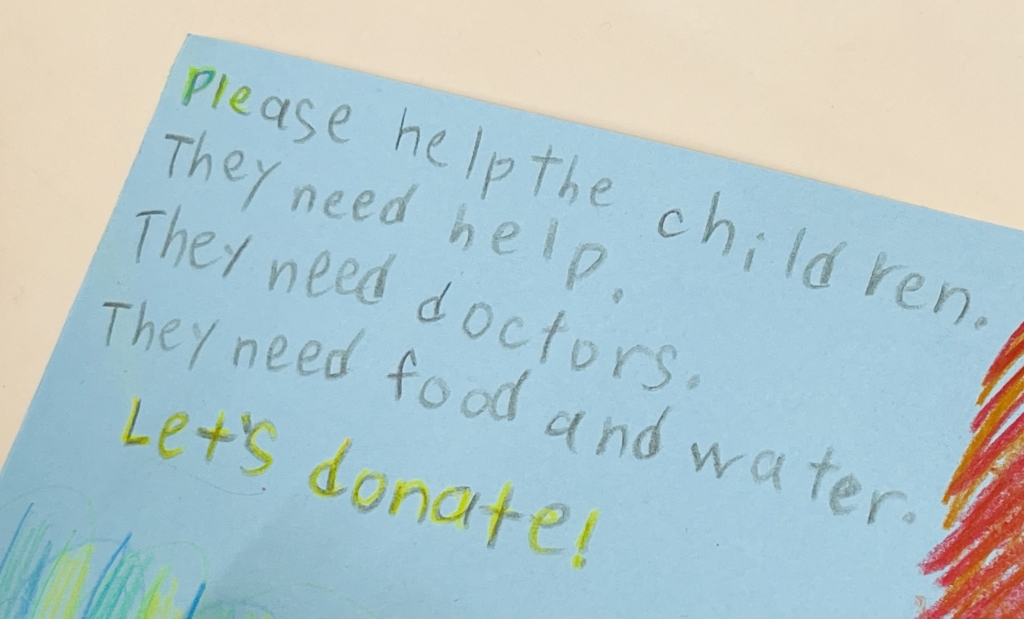 Please help the children.
They need help.
They need doctors.
They need food and water.
Let's donate!